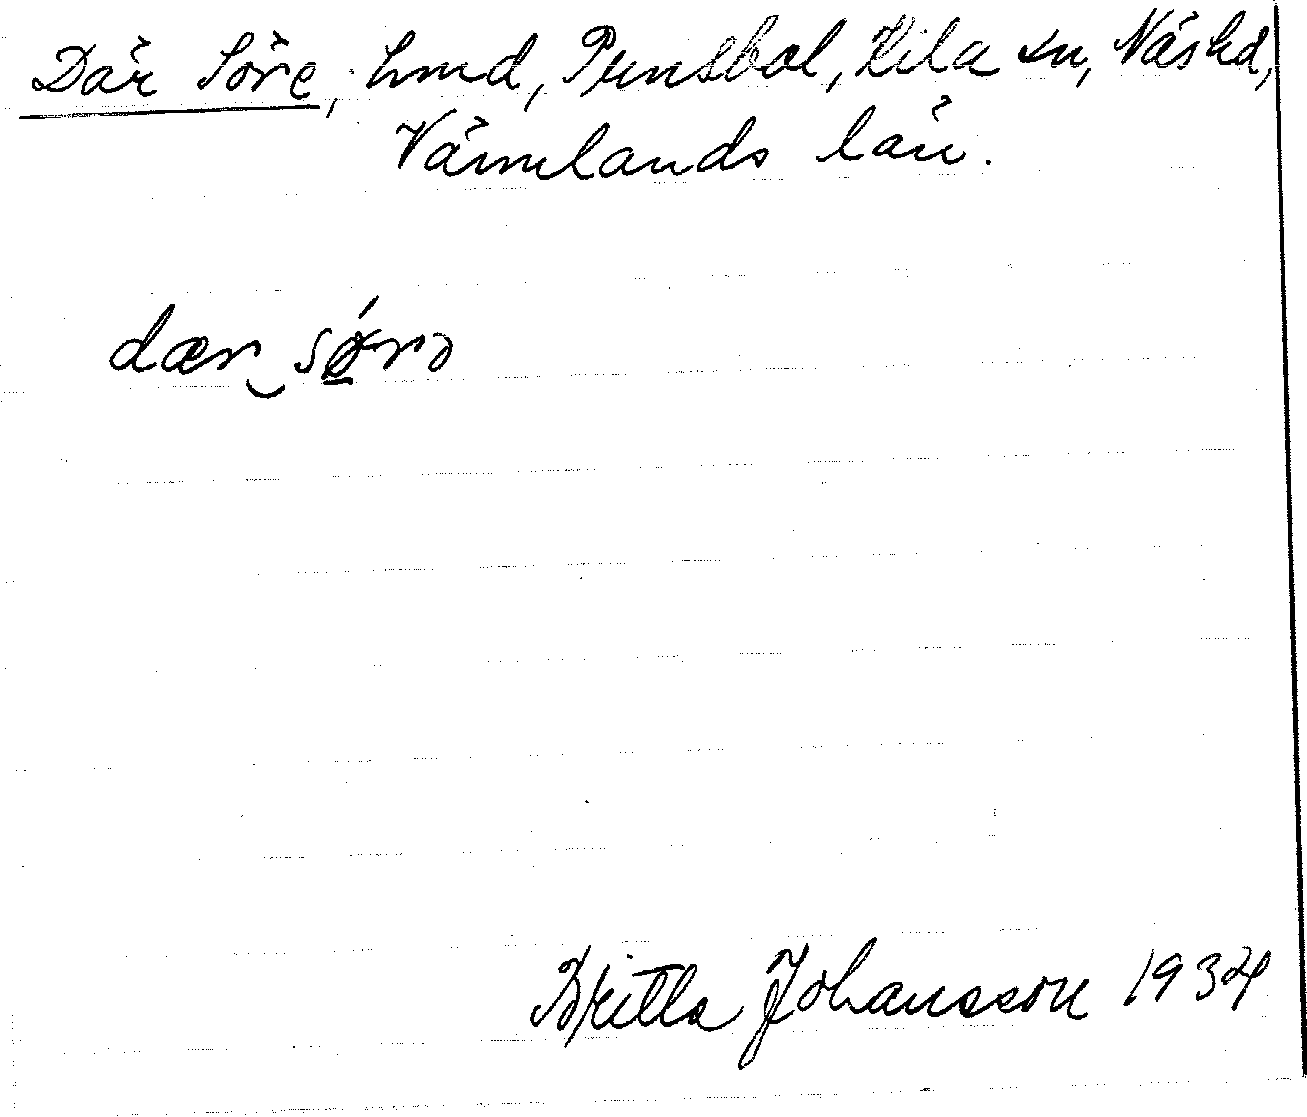 Där Söre, hmd, Punsbol, Kila sn, Näs hd,
Värmlands län.
dær söɾə
Britta Johansson 1934